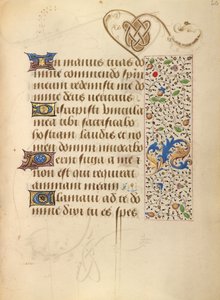 In manus tuas do
mine commendo spm
meum redemisti me do
mine deus veritatis
Dirupisti vincula
mea tibi sacrificabo
hostiam laudis et no
men domini invocabo
Periit fuga a me et
non est qui requirat
animam meam
Clamavi ad te do
mine dixi tu es spes